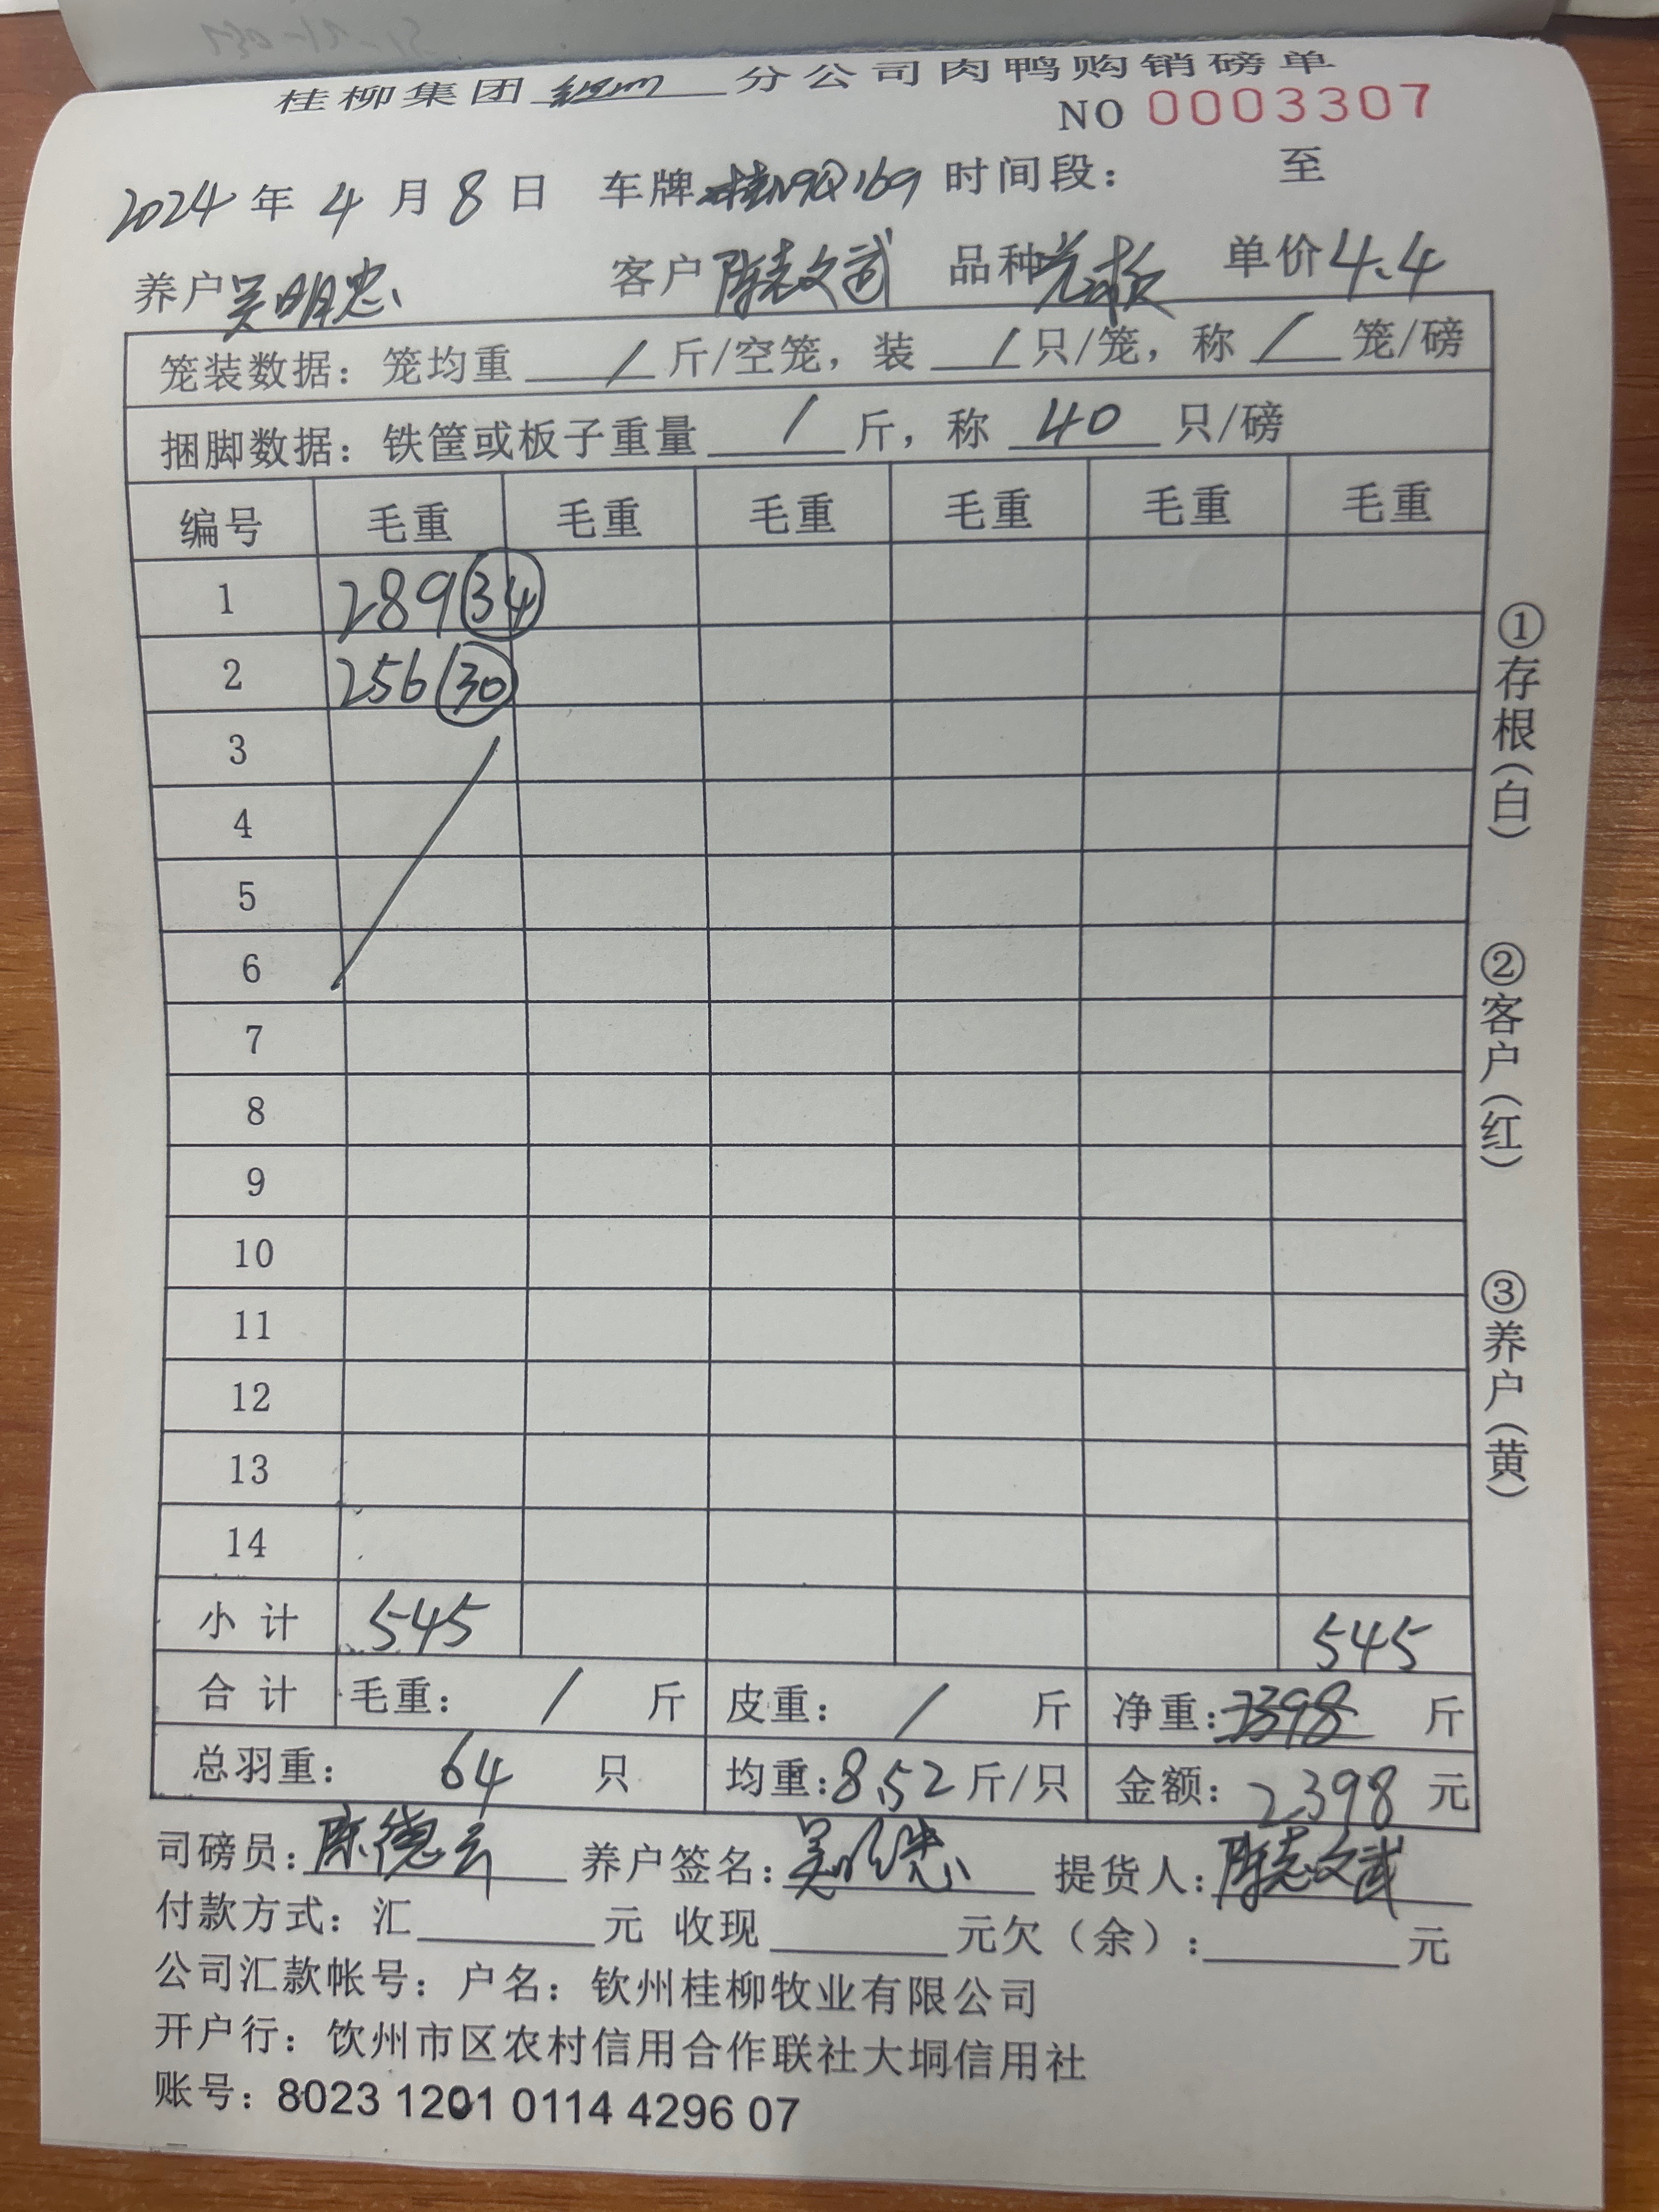 桂柳集团 分公司肉鸭购销磅单
NO 0003307
2024 年 4 月 8 日 车牌 桂N9Q169 时间段： 至
养户 吴明忠 客户 陈志文武 品种 单价 4.4
笼装数据：笼均重 / 斤/空笼，装 / 只/笼，称 / 笼/磅
捆脚数据：铁筐或板子重量 / 斤，称 40 只/磅
编号 毛重 毛重 毛重 毛重 毛重 毛重
1 289 34
2 256 30
3
4
5
6
7
8
9
10
11
12
13
14
小计 545 545
合计 毛重： / 斤 皮重： / 斤 净重：2398 斤
总羽重： 64 只 均重：8.52 斤/只 金额：2398 元
司磅员：陈德云 养户签名：吴明忠 提货人：陈志文武
付款方式：汇 元 收现 元欠（余）： 元
公司汇款帐号：户名：钦州桂柳牧业有限公司
开户行：钦州市区农村信用合作联社大垌信用社
账号：8023 1201 0114 4296 07
①存根（白）
②客户（红）
③养户（黄）